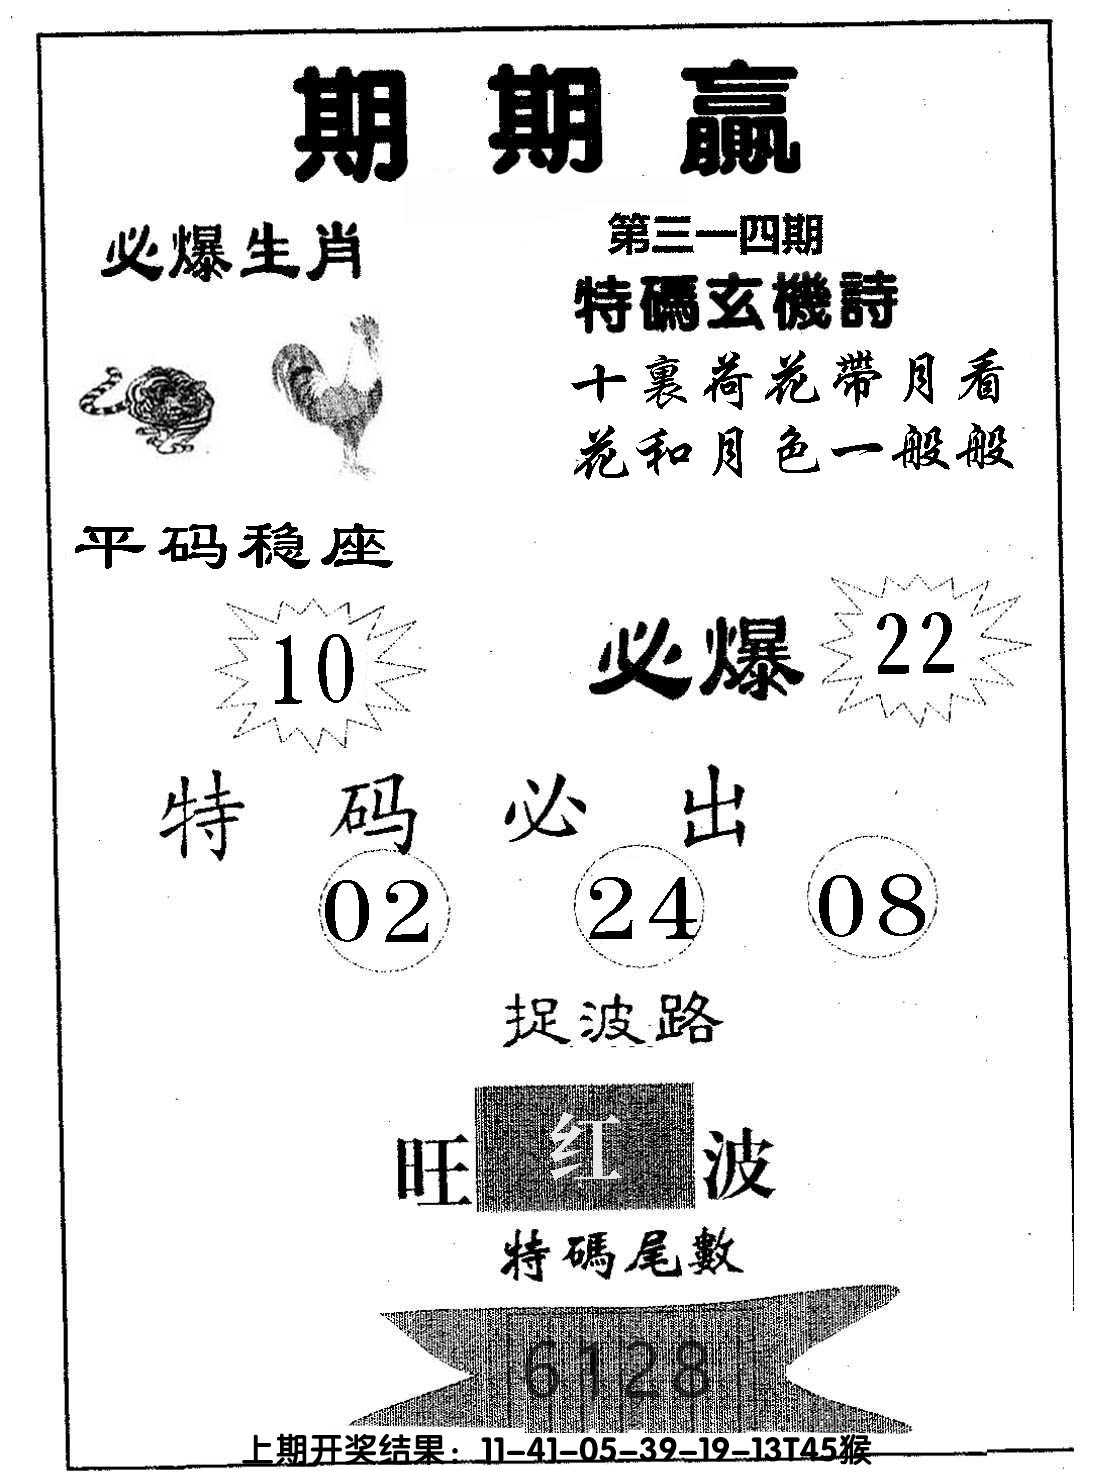 期期贏
必爆生肖
第三一四期
特碼玄機詩
十裏荷花帶月看
花和月色一般般
平码稳座
10
必爆 22
特码必出
02 24 08
捉波路
旺 红 波
特碼尾數
6128
上期开奖结果：11-41-05-39-19-13T45猴